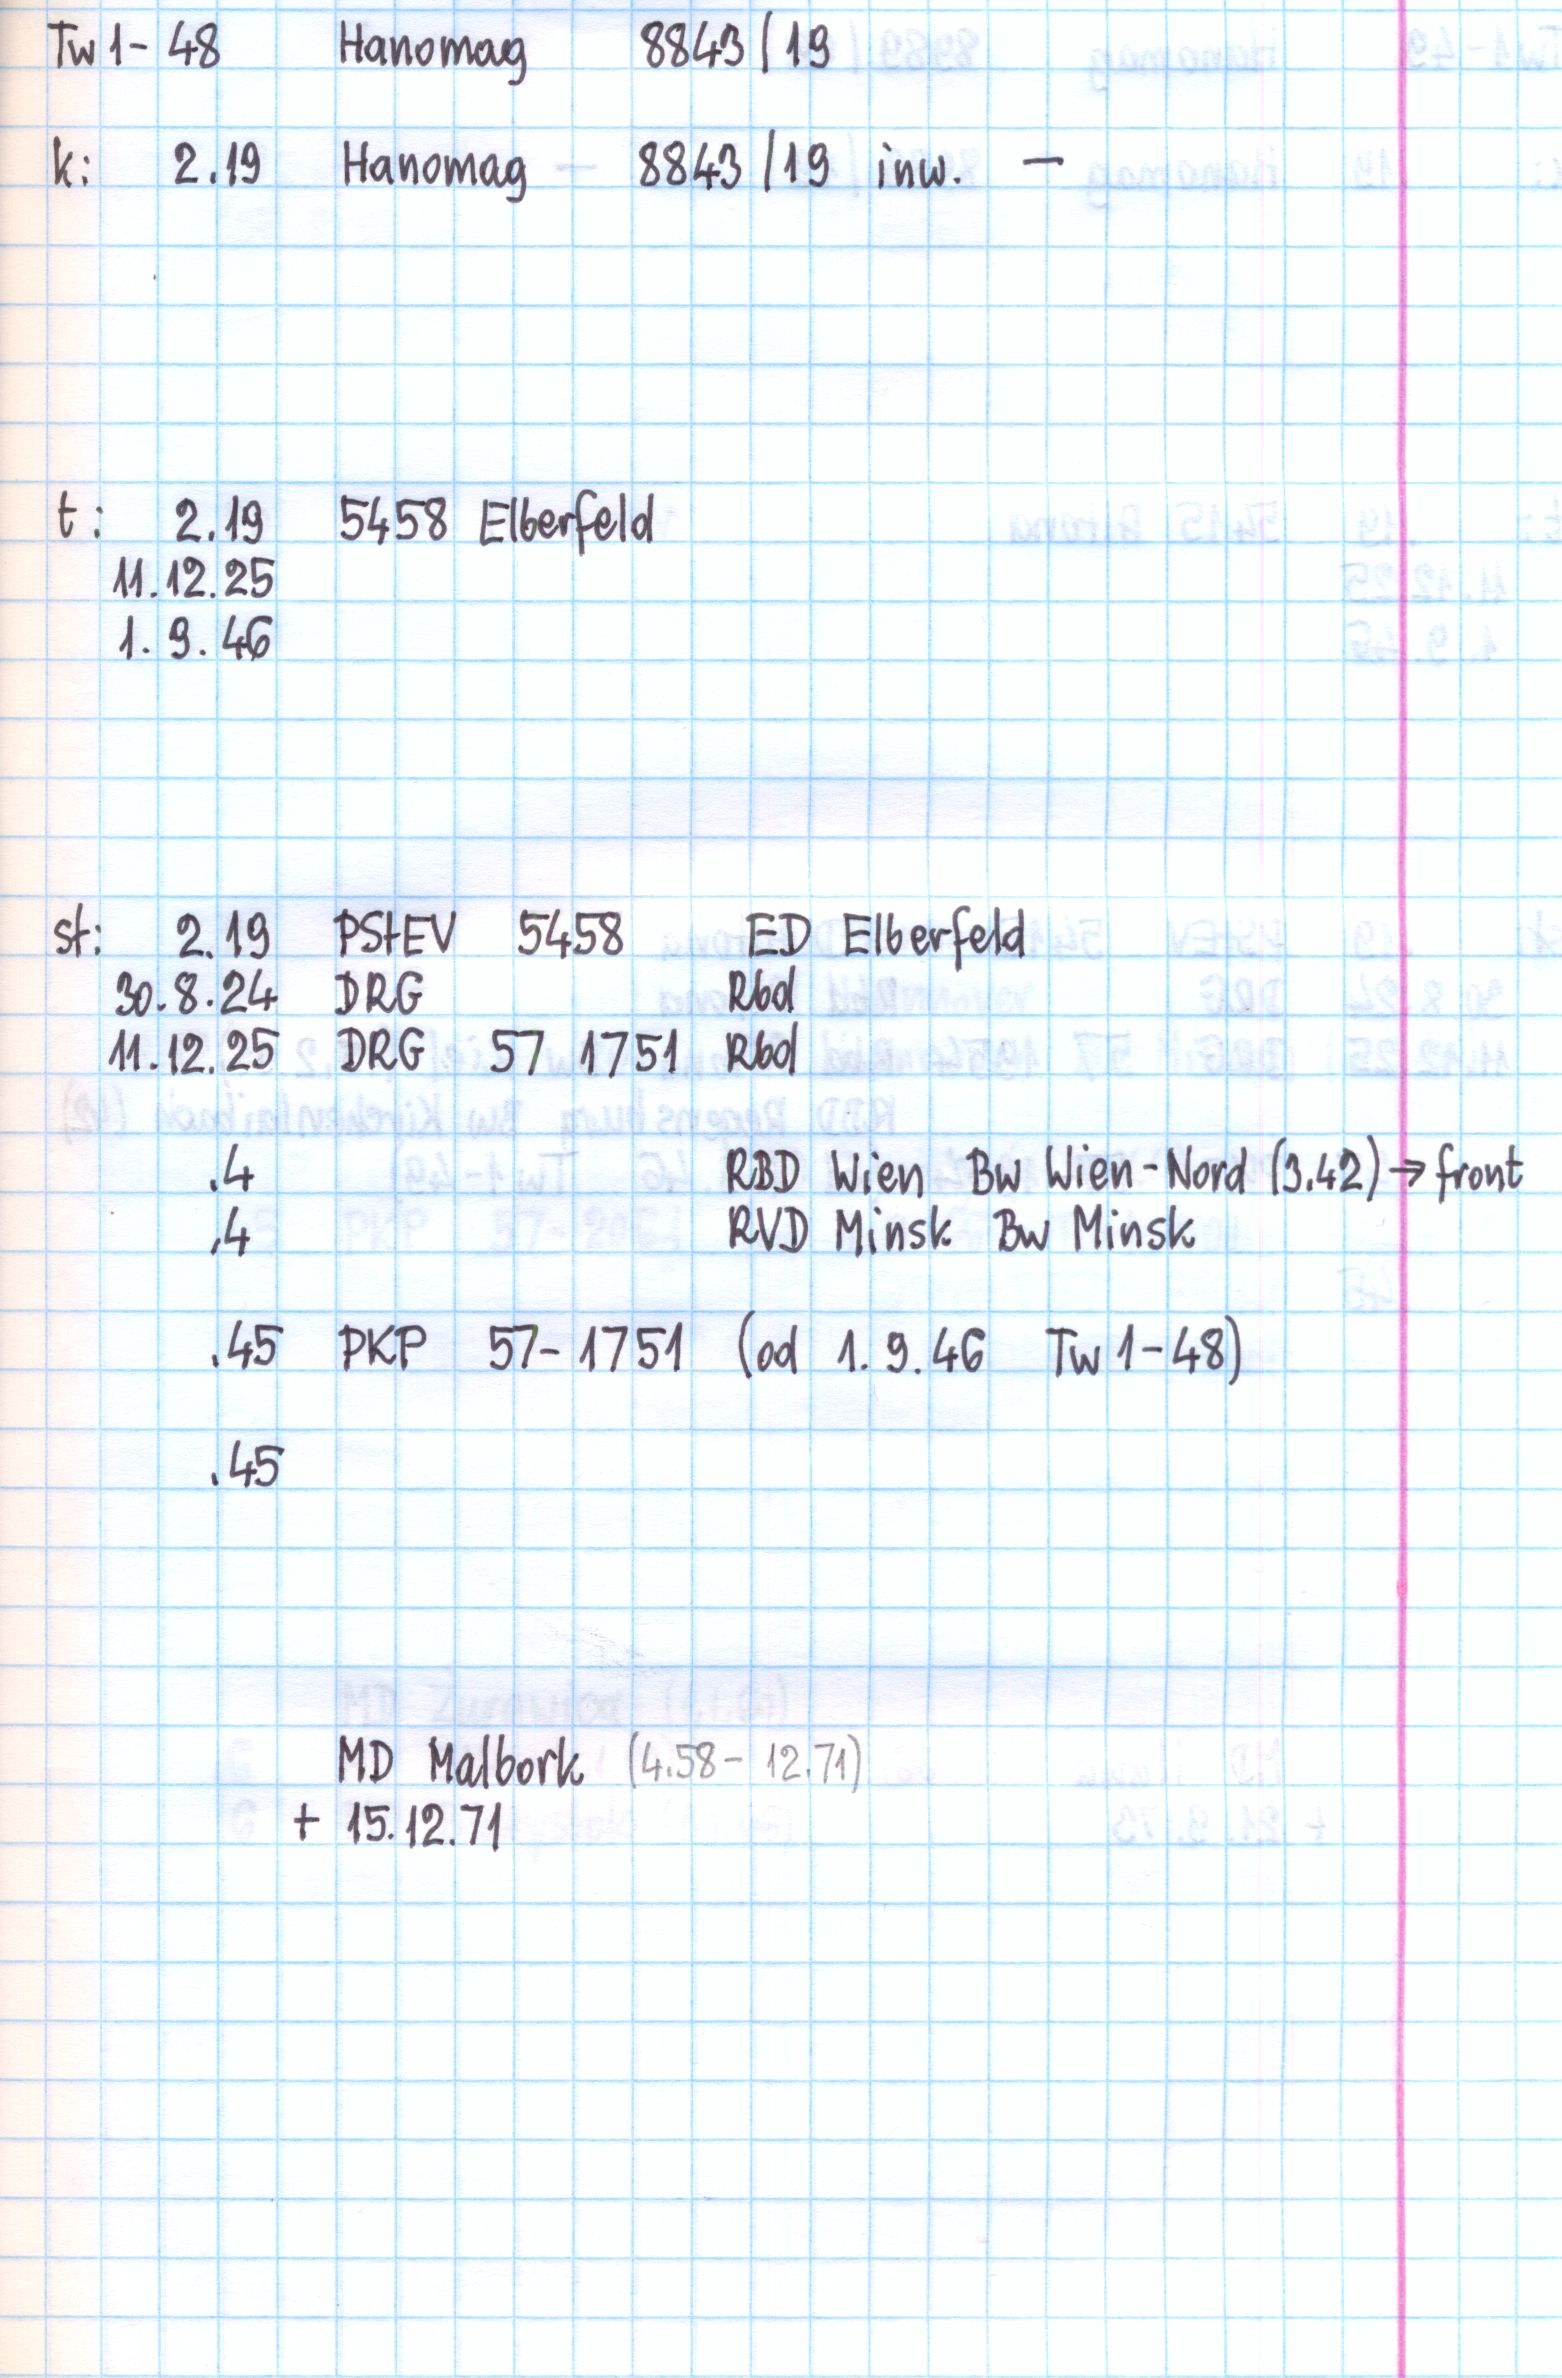 Tw1-48 Hanomag 8843/19
k: 2.19 Hanomag - 8843/19 inw. -
t: 2.19 5458 Elberfeld
11.12.25
1.9.46
st: 2.19 PStEV 5458 ED Elberfeld
30.8.24 DRG Rbd
11.12.25 DRG 57 1751 Rbd
.4 RBD Wien Bw Wien-Nord (3.42) → front
.4 RVD Minsk Bw Minsk
.45 PKP 57-1751 (od 1.9.46 Tw1-48)
.45
MD Malbork (4.58-12.71)
+ 15.12.71